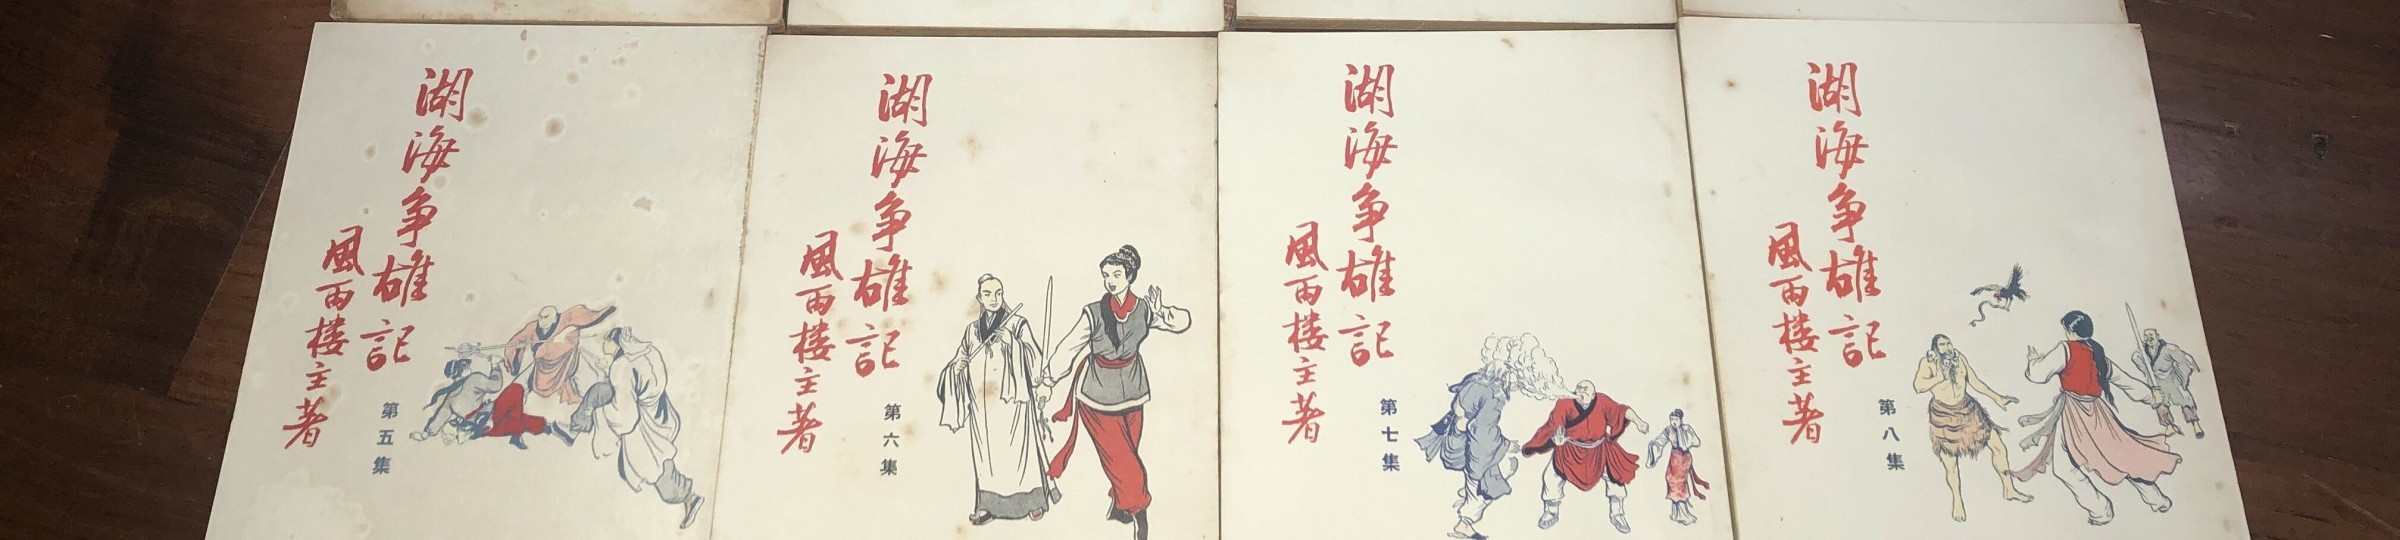 湖海争雄記
風雨楼主著
第五集
湖海争雄記
風雨楼主著
第六集
湖海争雄記
風雨楼主著
第七集
湖海争雄記
風雨楼主著
第八集